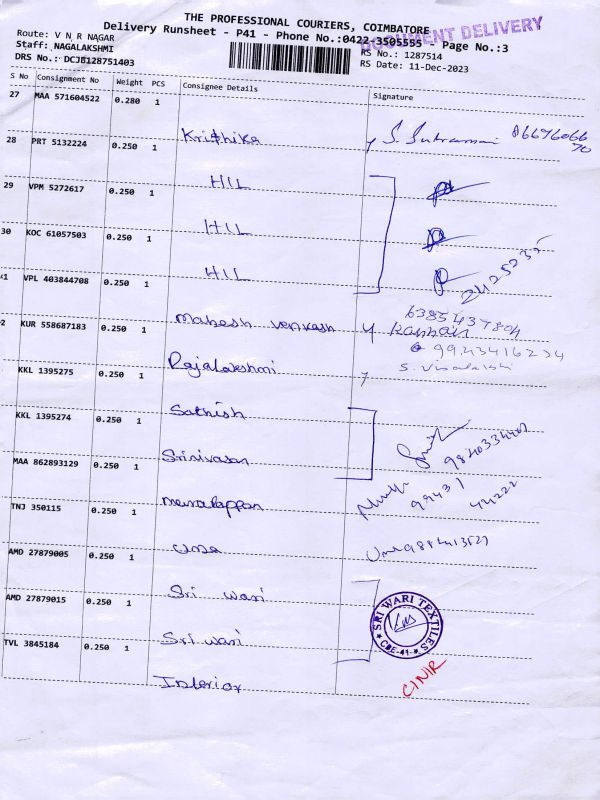 THE PROFESSIONAL COURIERS, COIMBATORE
Delivery Runsheet - P41 - Phone No.:0422-3505555 - Page No.:3
DOCUMENT DELIVERY
Route: V N R NAGAR
Staff: NAGALAKSHMI
DRS No.: DCJB128751403
RS No.: 1287514
RS Date: 11-Dec-2023
S No Consignment No Weight PCS Consignee Details Signature
27 MAA 571604522 0.280 1
Krithika
28 PRT 5132224 0.250 1
HIL
29 VPM 5272617 0.250 1
HIL
30 KOC 61057503 0.250 1
HIL
1 VPL 403844708 0.250 1
Mahesh venkash
6385437804
Kannan
2 KUR 558687183 0.250 1
Rajalakshmi
9943416234
KKL 1395275 0.250 1
Sathish
KKL 1395274 0.250 1
Srinivasan
MAA 862893129 0.250 1
TNJ 350115 0.250 1
Uma
Uma
AMD 27879005 0.250 1
Sri wari
AMD 27879015 0.250 1
Sri wari
SRI WARI TEXTILES
CBE-41
TVL 3845184 0.250 1
Interior
CINIR